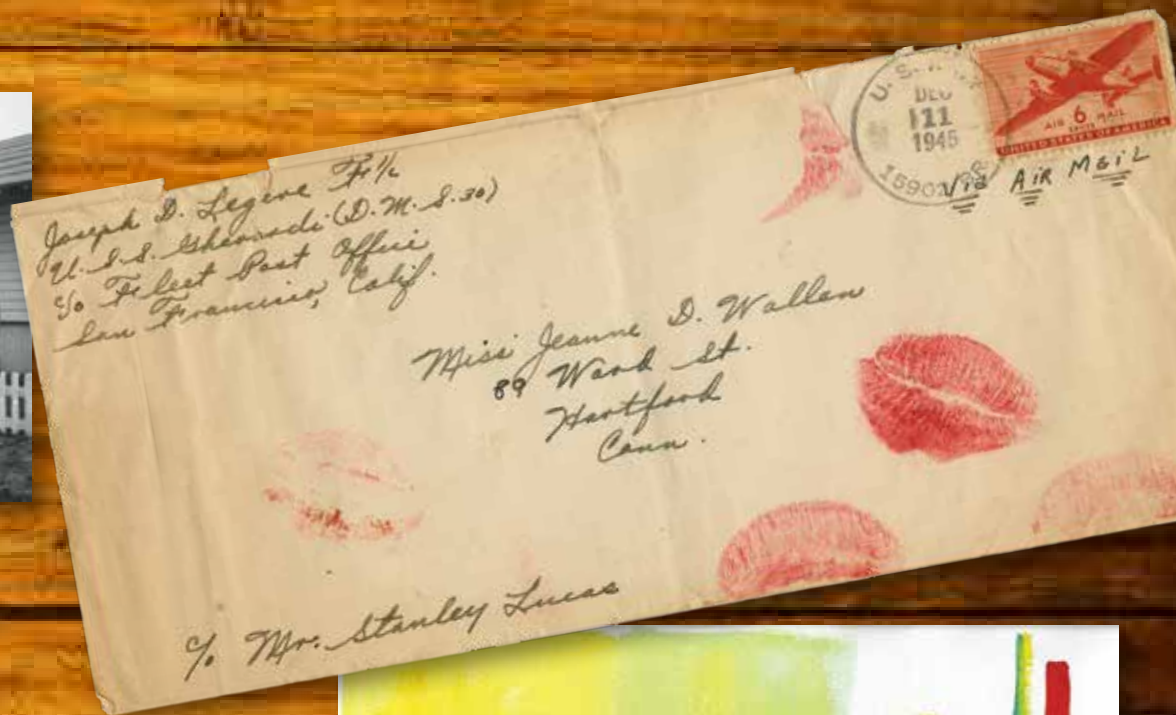 Joseph D. Legeve F 1/c
U.S.S. (D.M.S. 30)
c/o Fleet Post Office
San Francisco, Calif.
DEC
111
1945
AIR 6 MAIL
CENTS
UNITED STATES OF AMERICA
Via AIR MAIL
Miss Jeanne D. Wallen
89 Ward St.
Hartford
Conn.
c/o Mr. Stanley Lucas